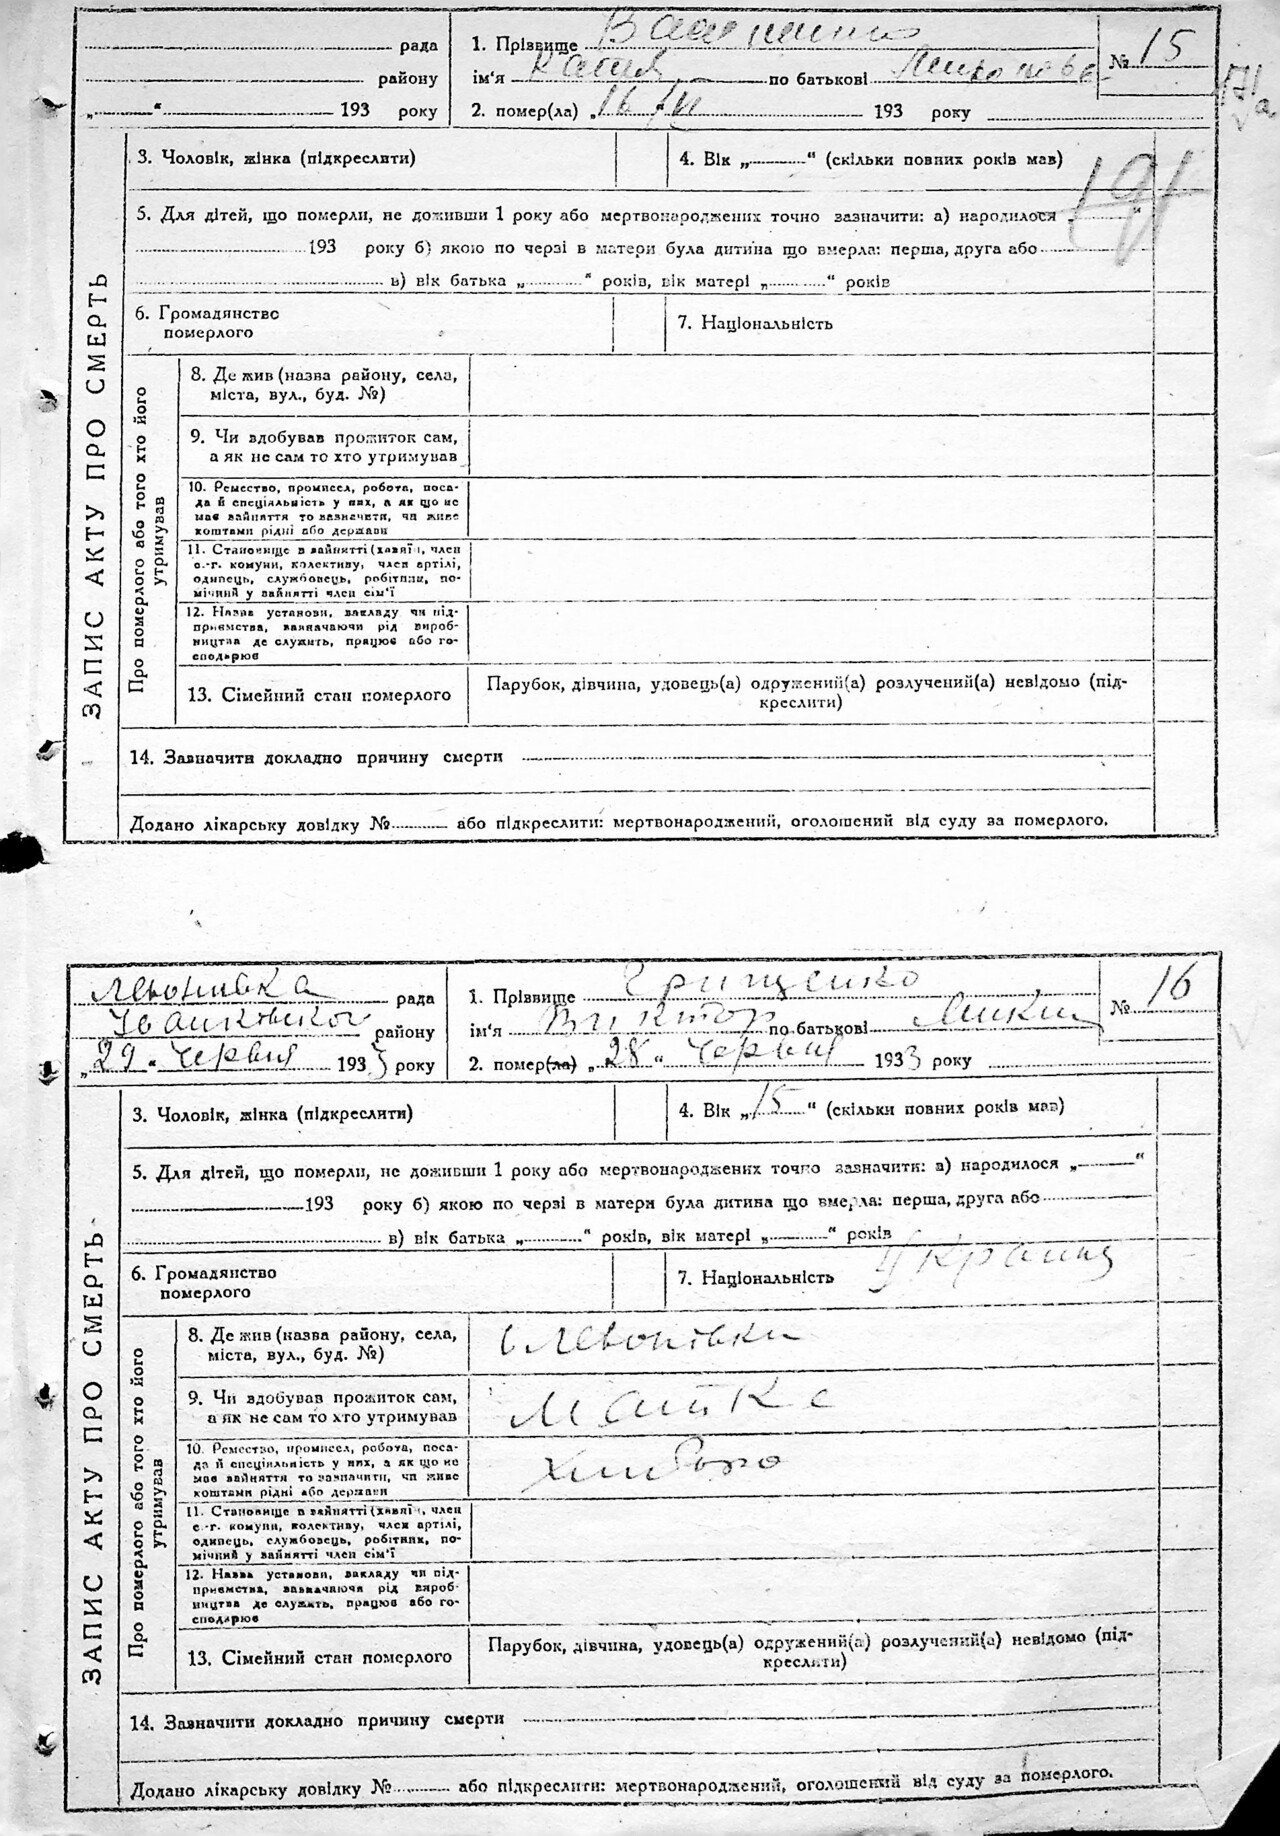 рада
району
„ “ 193 року
1. Прізвище
ім'я Катя по батькові
2. помер(ла) „16/VI 193 року
№ 15
ЗАПИС АКТУ ПРО СМЕРТЬ
3. Чоловік, жінка (підкреслити)
4. Вік „ “ (скільки повних років мав)
5. Для дітей, що померли, не доживши 1 року або мертвонароджених точно зазначити: а) народилося „ “
193 року б) якою по черзі в матери була дитина що вмерла: перша, друга або
в) вік батька „ “ років, вік матері „ “ років
6. Громадянство
померлого
7. Національність
Про померлого або того хто його
утримував
8. Де жив (назва району, села,
міста, вул., буд. №)
9. Чи здобував прожиток сам,
а як не сам то хто утримував
10. Ремество, промисел, робота, поса-
да й спеціяльність у них, а як що не
має зайняття то зазначити, чи живе
коштами рідні або держави
11. Становище в зайнятті (хазяїн, член
с.-г. комуни, колективу, член артілі,
одинець, службовець, робітник, по-
мічний у зайнятті член сім'ї
12. Назва установи, закладу чи під-
приємства, зазначаючи рід вироб-
ництва де служить, працює або го-
сподарює
13. Сімейний стан померлого
Парубок, дівчина, удовець(а) одружений(а) розлучений(а) невідомо (під-
креслити)
14. Зазначити докладно причину смерти
Додано лікарську довідку № або підкреслити: мертвонароджений, оголошений від суду за померлого.
Левонивка рада
району
„29“ Червня 1933 року
1. Прізвище Грищенко
ім'я Виктор по батькові
2. помер(ла) „28“ Червня 1933 року
№ 16
ЗАПИС АКТУ ПРО СМЕРТЬ
3. Чоловік, жінка (підкреслити)
4. Вік „15“ (скільки повних років мав)
5. Для дітей, що померли, не доживши 1 року або мертвонароджених точно зазначити: а) народилося „ “
193 року б) якою по черзі в матери була дитина що вмерла: перша, друга або
в) вік батька „ “ років, вік матері „ “ років
6. Громадянство
померлого
7. Національність Україн
Про померлого або того хто його
утримував
8. Де жив (назва району, села,
міста, вул., буд. №)
с Левонівки
9. Чи здобував прожиток сам,
а як не сам то хто утримував
10. Ремество, промисел, робота, поса-
да й спеціяльність у них, а як що не
має зайняття то зазначити, чи живе
коштами рідні або держави
11. Становище в зайнятті (хазяїн, член
с.-г. комуни, колективу, член артілі,
одинець, службовець, робітник, по-
мічний у зайнятті член сім'ї
12. Назва установи, закладу чи під-
приємства, зазначаючи рід вироб-
ництва де служить, працює або го-
сподарює
13. Сімейний стан померлого
Парубок, дівчина, удовець(а) одружений(а) розлучений(а) невідомо (під-
креслити)
14. Зазначити докладно причину смерти
Додано лікарську довідку № або підкреслити: мертвонароджений, оголошений від суду за померлого.